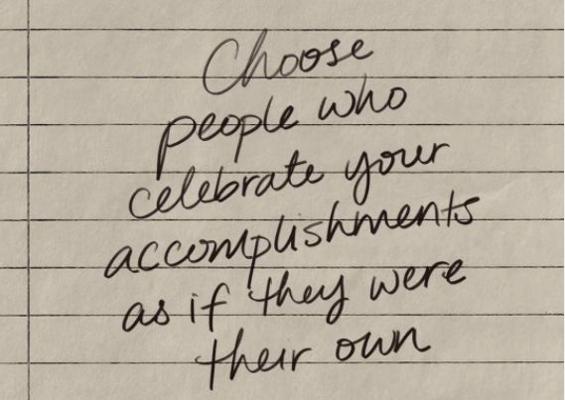 Choose
people who
celebrate your
accomplishments
as if they were
their own